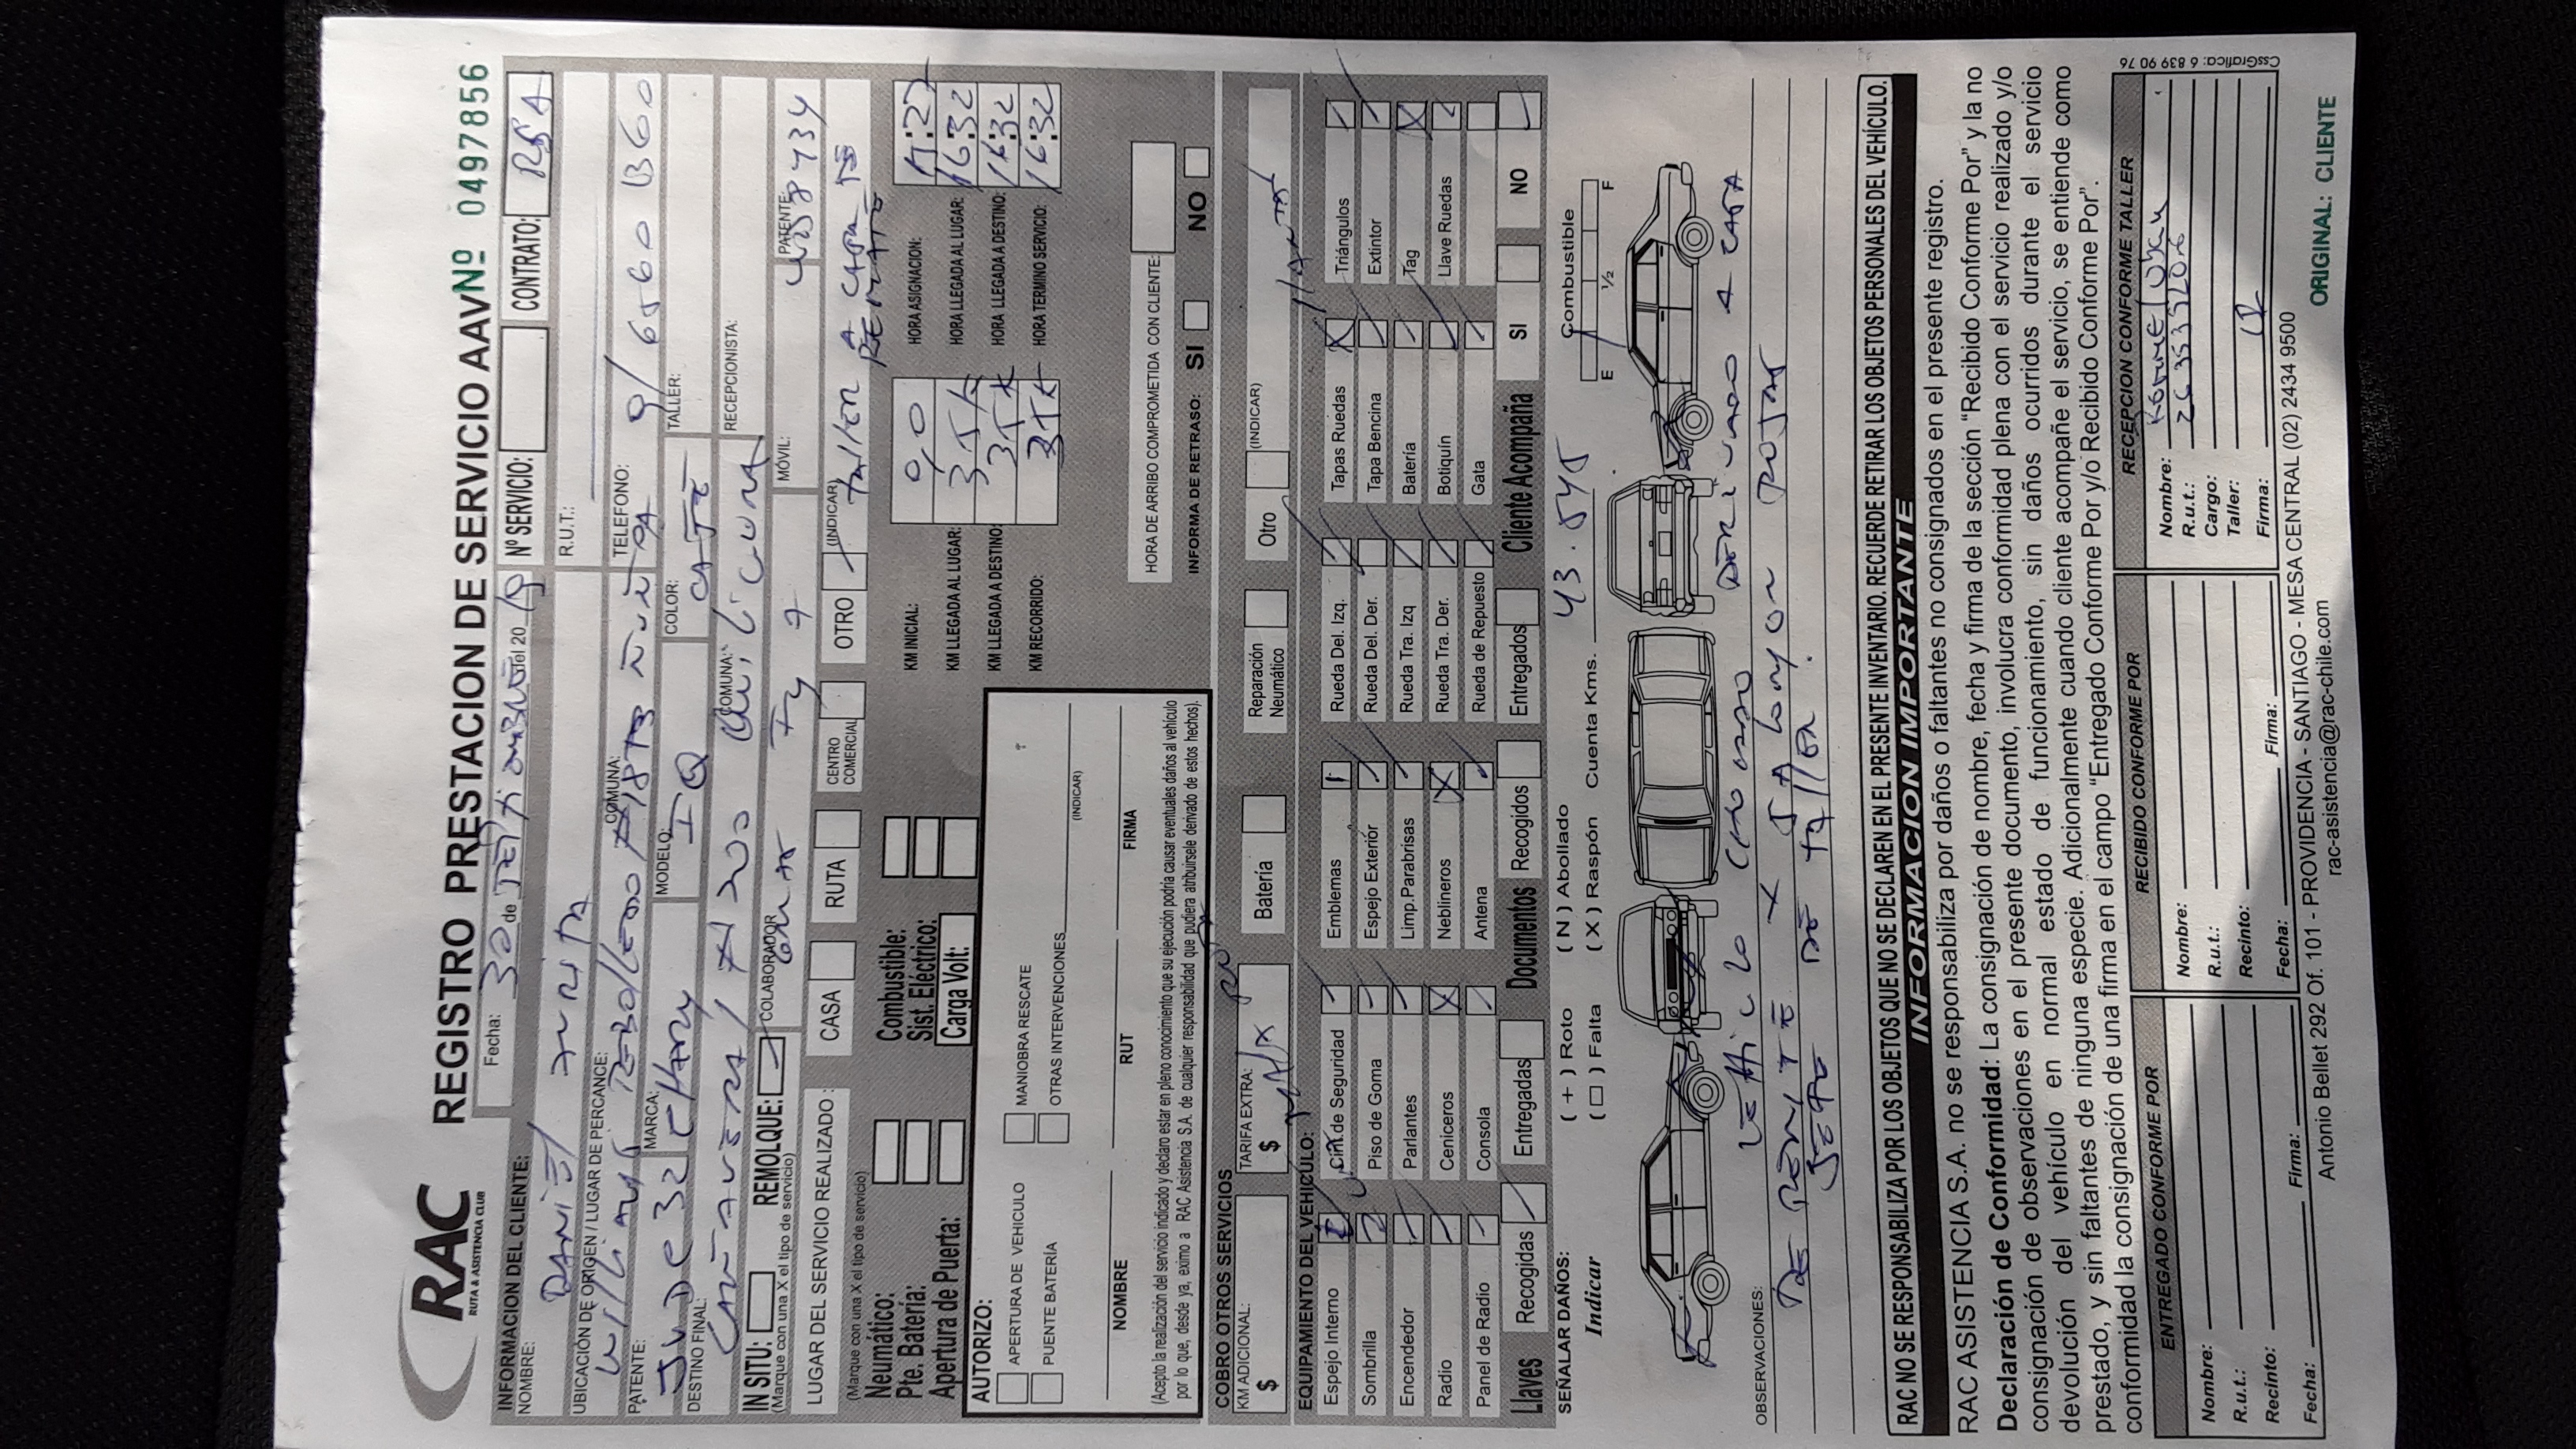 RAC
RUTA & ASISTENCIA CLUB
REGISTRO PRESTACION DE SERVICIO AAV Nº 0497856
Fecha: 30 de del 20 19 Nº SERVICIO: CONTRATO: RSA
INFORMACION DEL CLIENTE:
NOMBRE: DANIEL ZURITA R.U.T.:
UBICACIÓN DE ORIGEN / LUGAR DE PERCANCE: COMUNA: TELEFONO:
Williams Rebolledo ÑUÑOA 9/
PATENTE: MARCA: MODELO: COLOR: TALLER:
CHERY IQ CAFE
DESTINO FINAL: COMUNA: RECEPCIONISTA:
CAÑAVERAL 200 Quilicura
IN SITU: REMOLQUE: COLABORADOR MÓVIL: PATENTE:
(Marque con una X el tipo de servicio)
LUGAR DEL SERVICIO REALIZADO: CASA RUTA CENTRO COMERCIAL OTRO (INDICAR) taller A CASA DE REMATE
(Marque con una X el tipo de servicio)
Neumático: Combustible:
Pte. Batería: Sist. Eléctrico:
Apertura de Puerta: Carga Volt:
KM INICIAL: 0,0 HORA ASIGNACION:
KM LLEGADA AL LUGAR: 35K HORA LLEGADA AL LUGAR: 16:32
KM LLEGADA A DESTINO: 35K HORA LLEGADA A DESTINO: 16:32
KM RECORRIDO: 35K HORA TERMINO SERVICIO: 16:32
AUTORIZO:
APERTURA DE VEHICULO MANIOBRA RESCATE
PUENTE BATERÍA OTRAS INTERVENCIONES (INDICAR)
NOMBRE RUT FIRMA
(Acepto la realización del servicio indicado y declaro estar en pleno conocimiento que su ejecución podría causar eventuales daños al vehículo
por lo que, desde ya, eximo a RAC Asistencia S.A. de cualquier responsabilidad que pudiera atribuírsele derivado de estos hechos).
HORA DE ARRIBO COMPROMETIDA CON CLIENTE:
INFORMA DE RETRASO: SI NO
COBRO OTROS SERVICIOS
KM ADICIONAL: $ TARIFA EXTRA: $ Batería Reparación Neumático Otro (INDICAR)
EQUIPAMIENTO DEL VEHICULO:
Espejo Interno Cint. de Seguridad Emblemas Rueda Del. Izq. Tapas Ruedas Triángulos
Sombrilla Piso de Goma Espejo Exterior Rueda Del. Der. Tapa Bencina Extintor
Encendedor Parlantes Limp. Parabrisas Rueda Tra. Izq Batería Tag
Radio Ceniceros Neblineros Rueda Tra. Der. Botiquín Llave Ruedas
Panel de Radio Consola Antena Rueda de Repuesto Gata
Llaves Recogidas Entregadas Documentos Recogidos Entregados Cliente Acompaña SI NO
SEÑALAR DAÑOS: ( + ) Roto ( N ) Abollado
Indicar ( □ ) Falta ( X ) Raspón Cuenta Kms. 43.545
Combustible
E ½ F
OBSERVACIONES: VEHICULO CHOCADO DERIVADO A CASA
DE REMATE X
DE TALLER.
RAC NO SE RESPONSABILIZA POR LOS OBJETOS QUE NO SE DECLAREN EN EL PRESENTE INVENTARIO. RECUERDE RETIRAR LOS OBJETOS PERSONALES DEL VEHÍCULO.
INFORMACION IMPORTANTE
RAC ASISTENCIA S.A. no se responsabiliza por daños o faltantes no consignados en el presente registro.
Declaración de Conformidad: La consignación de nombre, fecha y firma de la sección "Recibido Conforme Por" y la no
consignación de observaciones en el presente documento, involucra conformidad plena con el servicio realizado y/o
devolución del vehículo en normal estado de funcionamiento, sin daños ocurridos durante el servicio
prestado, y sin faltantes de ninguna especie. Adicionalmente cuando cliente acompañe el servicio, se entiende como
conformidad la consignación de una firma en el campo "Entregado Conforme Por y/o Recibido Conforme Por".
ENTREGADO CONFORME POR
Nombre:
R.u.t.:
Recinto:
Fecha: Firma:
RECIBIDO CONFORME POR
Nombre:
R.u.t.:
Recinto:
Fecha: Firma:
RECEPCION CONFORME TALLER
Nombre:
R.u.t.:
Cargo:
Taller:
Firma:
CssGrafica: 6 839 90 76
Antonio Bellet 292 Of. 101 - PROVIDENCIA - SANTIAGO - MESA CENTRAL (02) 2434 9500
rac-asistencia@rac-chile.com
ORIGINAL: CLIENTE